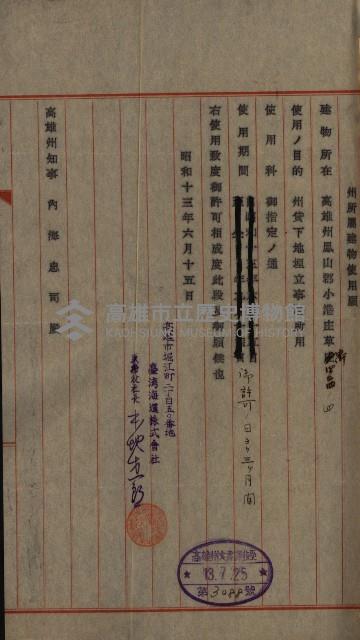 州所屬建物使用願
建物所在 高雄州鳳山郡小港庄草
使用ノ目的 州貸下地埋立事務所用
使用料 御指定ノ通
使用期間 御許可ノ日ヨリ三ヶ月間
右使用致度御許可相成度此段及御願候也
昭和十三年六月十五日
高雄市堀江町二丁目五〇番地
臺湾海運株式會社
高雄州知事 內海忠司殿
高雄州文書課收受
13.7.25
第3088號
高雄市立歷史博物館
KAOHSIUNG MUSEUM OF HISTORY